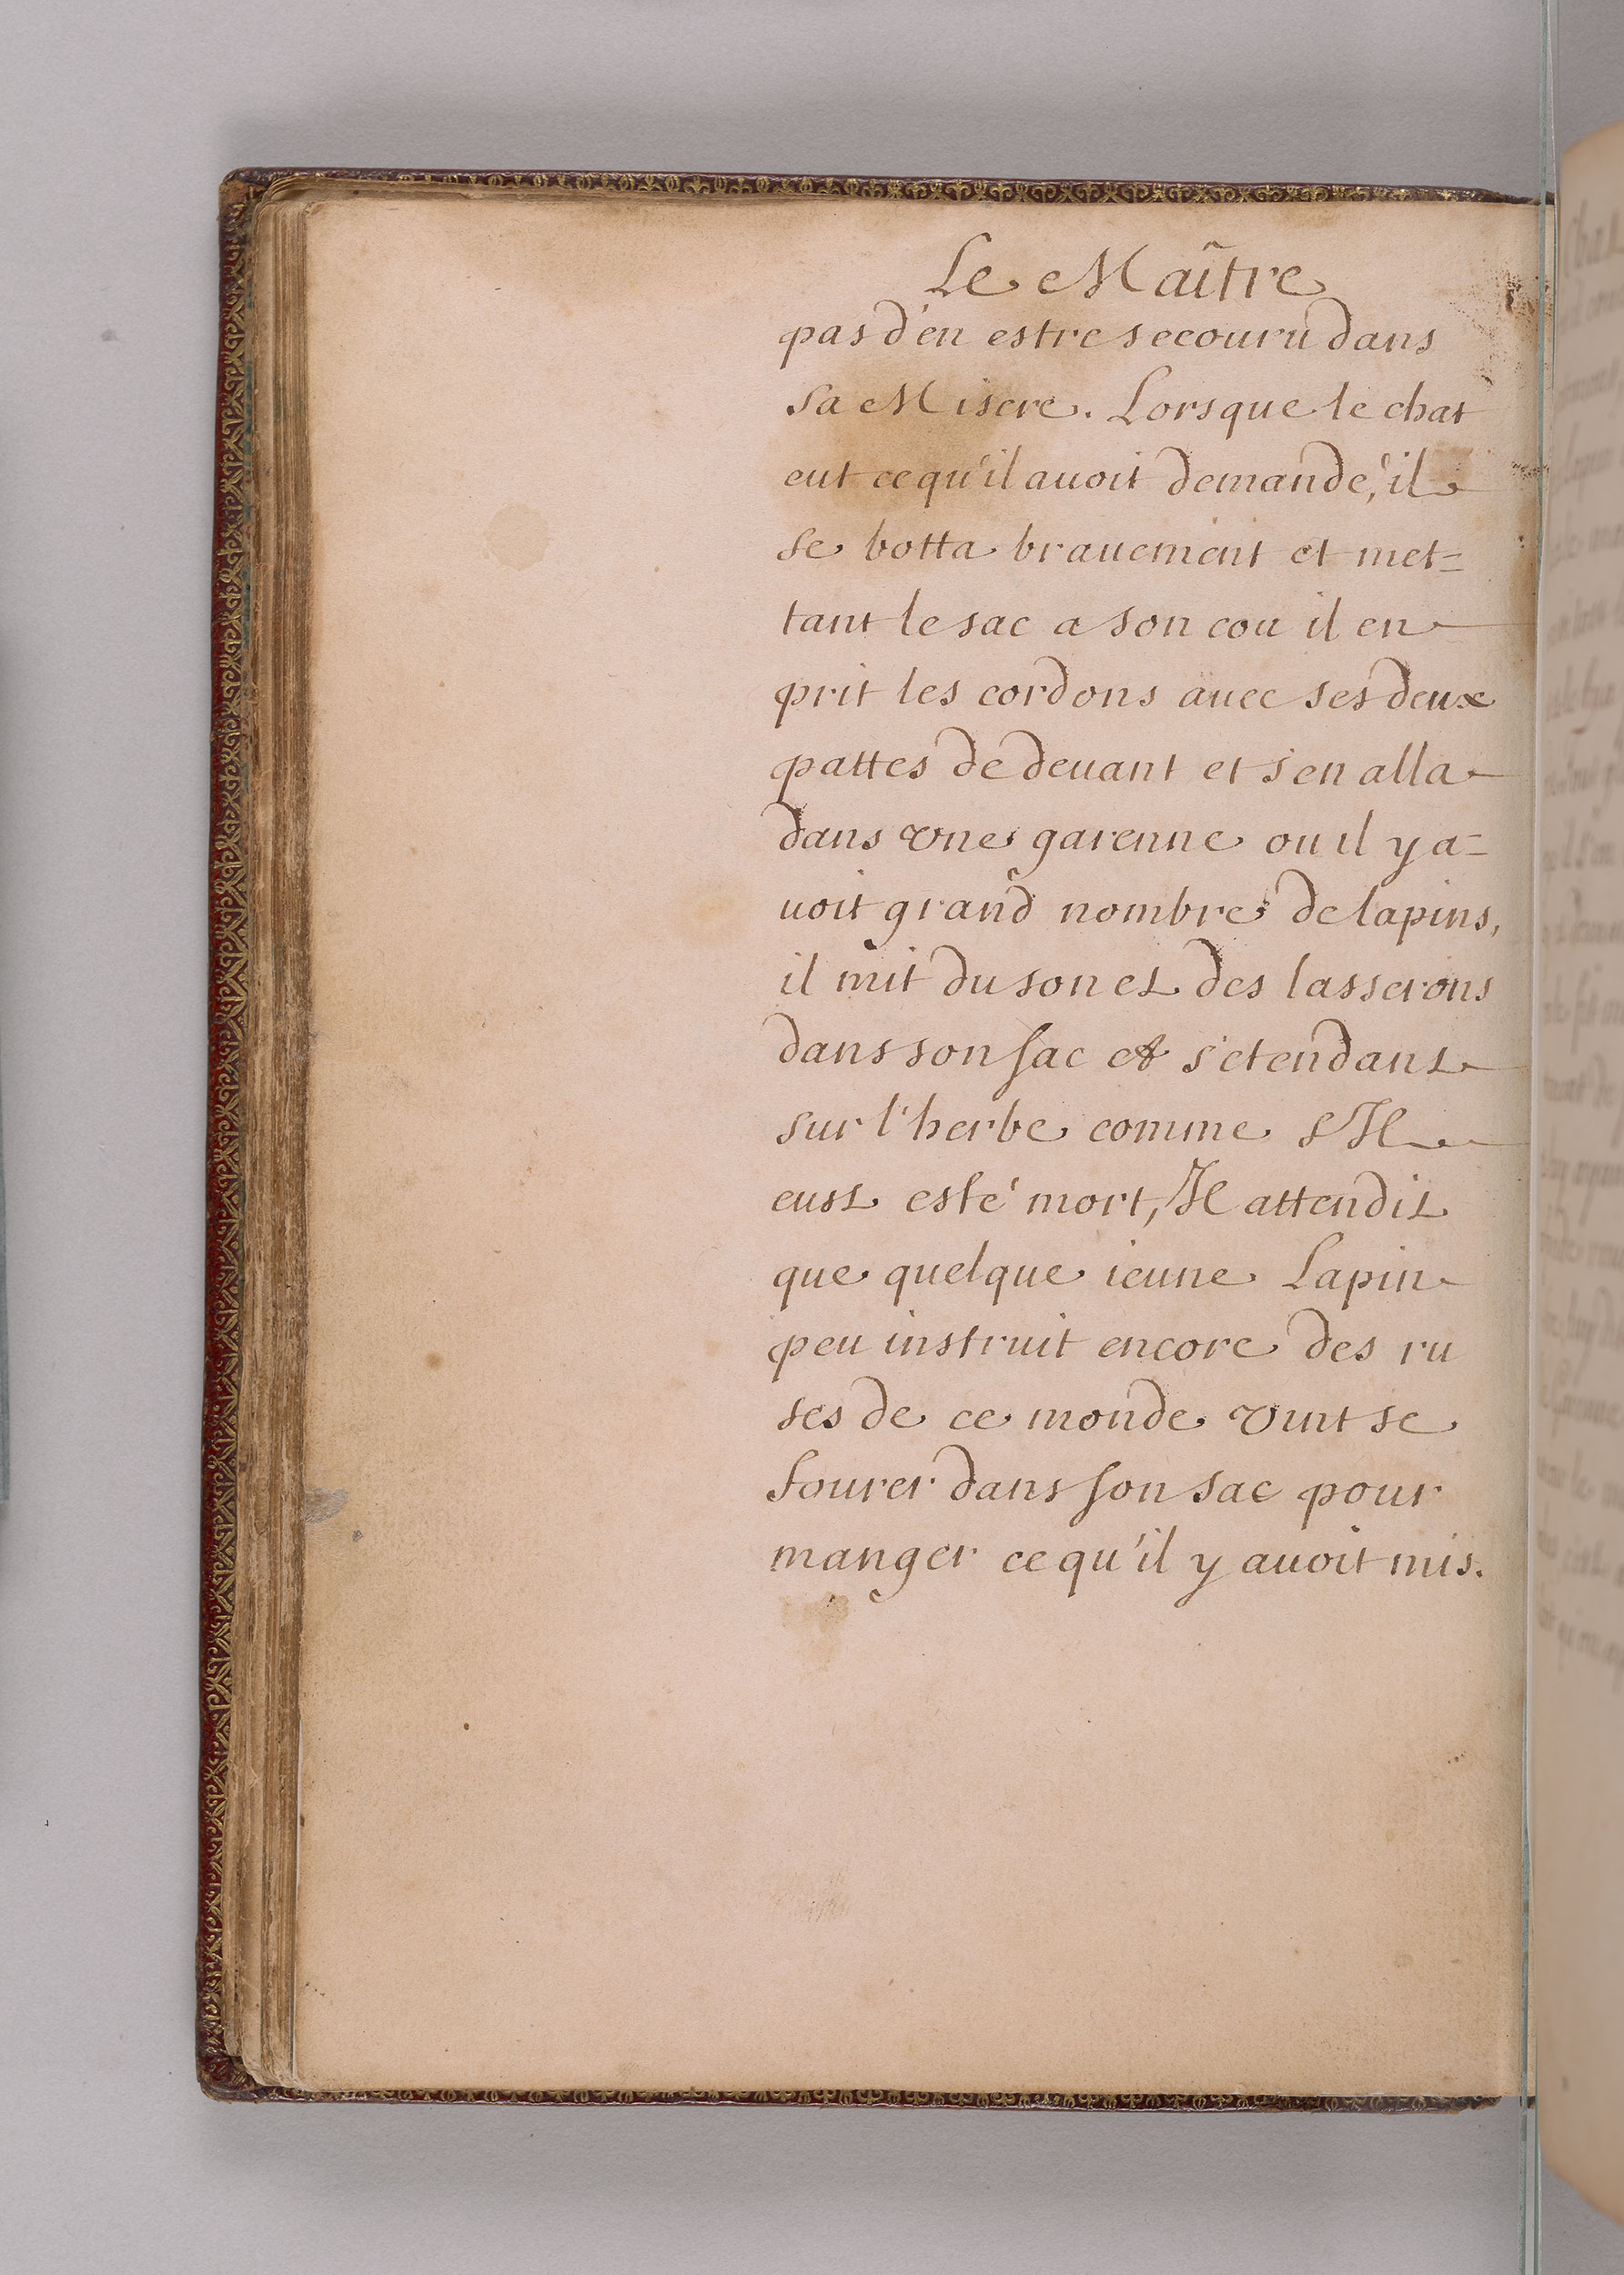 Le Maître
pas d'en estre secouru dans
sa Misere. Lorsque le chat
eut ce qu'il auoit demandé, il
se botta brauement et met=
tant le sac a son cou il en
prit les cordons auec ses deux
pattes de deuant et s'en alla
dans vne garenne ou il y a=
uoit grand nombre de lapins,
il mit du son et des lasserons
dans son sac et s'etendant
sur l'herbe comme s'Il
eust esté mort, Il attendit
que quelque ieune Lapin
peu instruit encore des ru
ses de ce monde vint se
fourer dans son sac pour
manger ce qu'il y auoit mis.